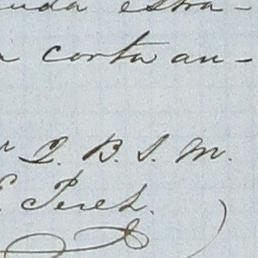 uda estra-
corta au-
Q. B. S. M.
Perez.